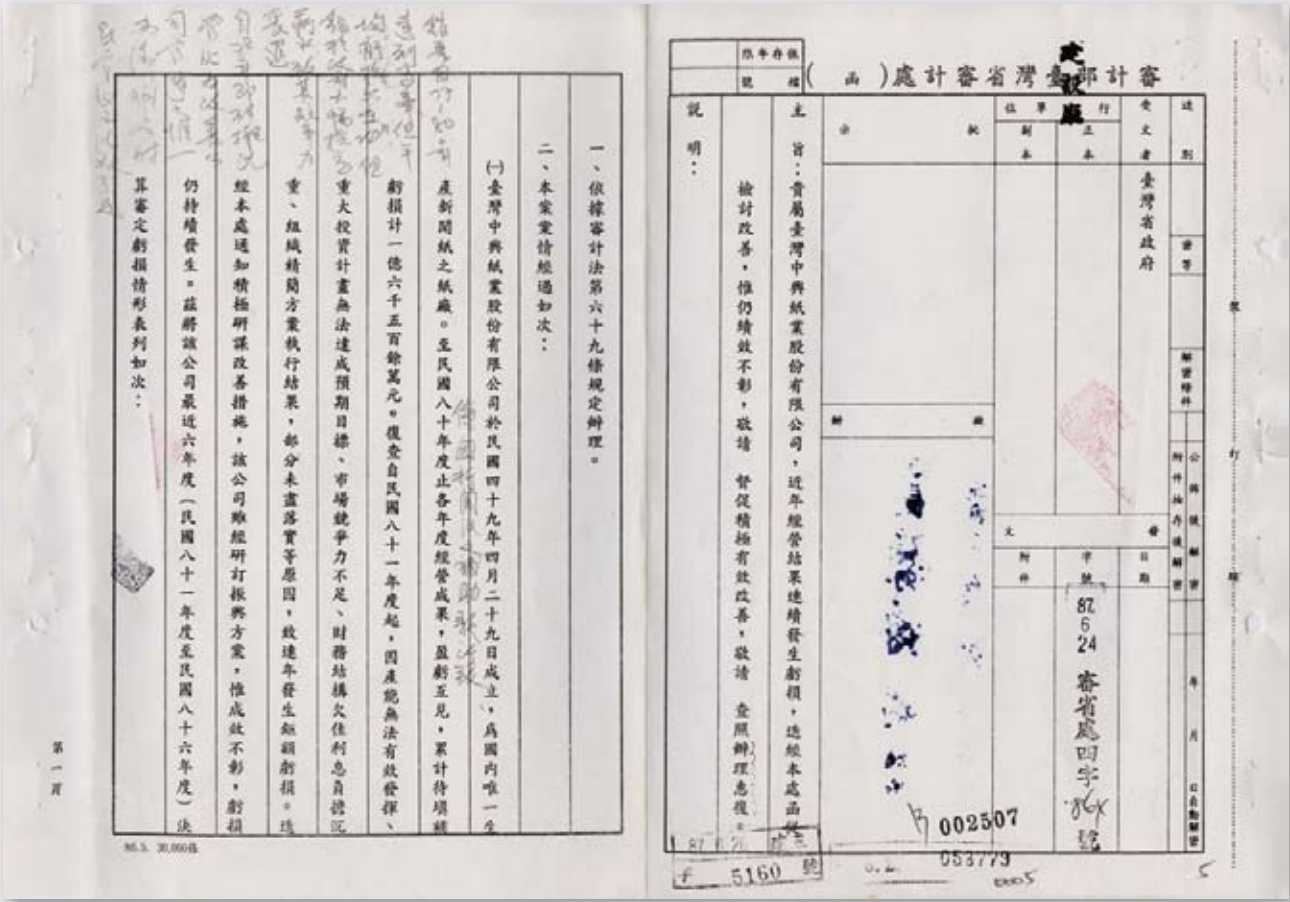 保存年限
檔號
審計部臺灣省審計處(函)
建設廳
速別
受文者
臺灣省政府
密等
解密條件
公佈後解密
附件抽存後解密
年 月 日自動解密
行單位
正本
副本
發文
日期
字號
附件
87 6 24
審省處四字
號
批示
擬辦
主旨：貴屬臺灣中興紙業股份有限公司，近年經營結果連續發生虧損，迭經本處函促
檢討改善，惟仍績效不彰，敬請 督促積極有效改善，敬請 查照辦理惠復。
說明：
裝
訂
線
002507
053779
0005
5
5160 號
一、依據審計法第六十九條規定辦理。
二、本案案情經過如次：
㈠臺灣中興紙業股份有限公司於民國四十九年四月二十九日成立，為國內唯一生
產新聞紙之紙廠。至民國八十年度止各年度經營成果，盈虧互見，累計待填補
虧損計一億六千五百餘萬元。復查自民國八十一年度起，因產能無法有效發揮、
重大投資計畫無法達成預期目標、市場競爭力不足、財務結構欠佳利息負擔沉
重、組織精簡方案執行結果，部分未盡落實等原因，致連年發生鉅額虧損。迭
經本處通知積極研謀改善措施，該公司雖經研訂振興方案，惟成效不彰，虧損
仍持續發生。茲將該公司最近六年度（民國八十一年度至民國八十六年度）決
算審定虧損情形表列如次：
第一頁
86.5. 30,000張